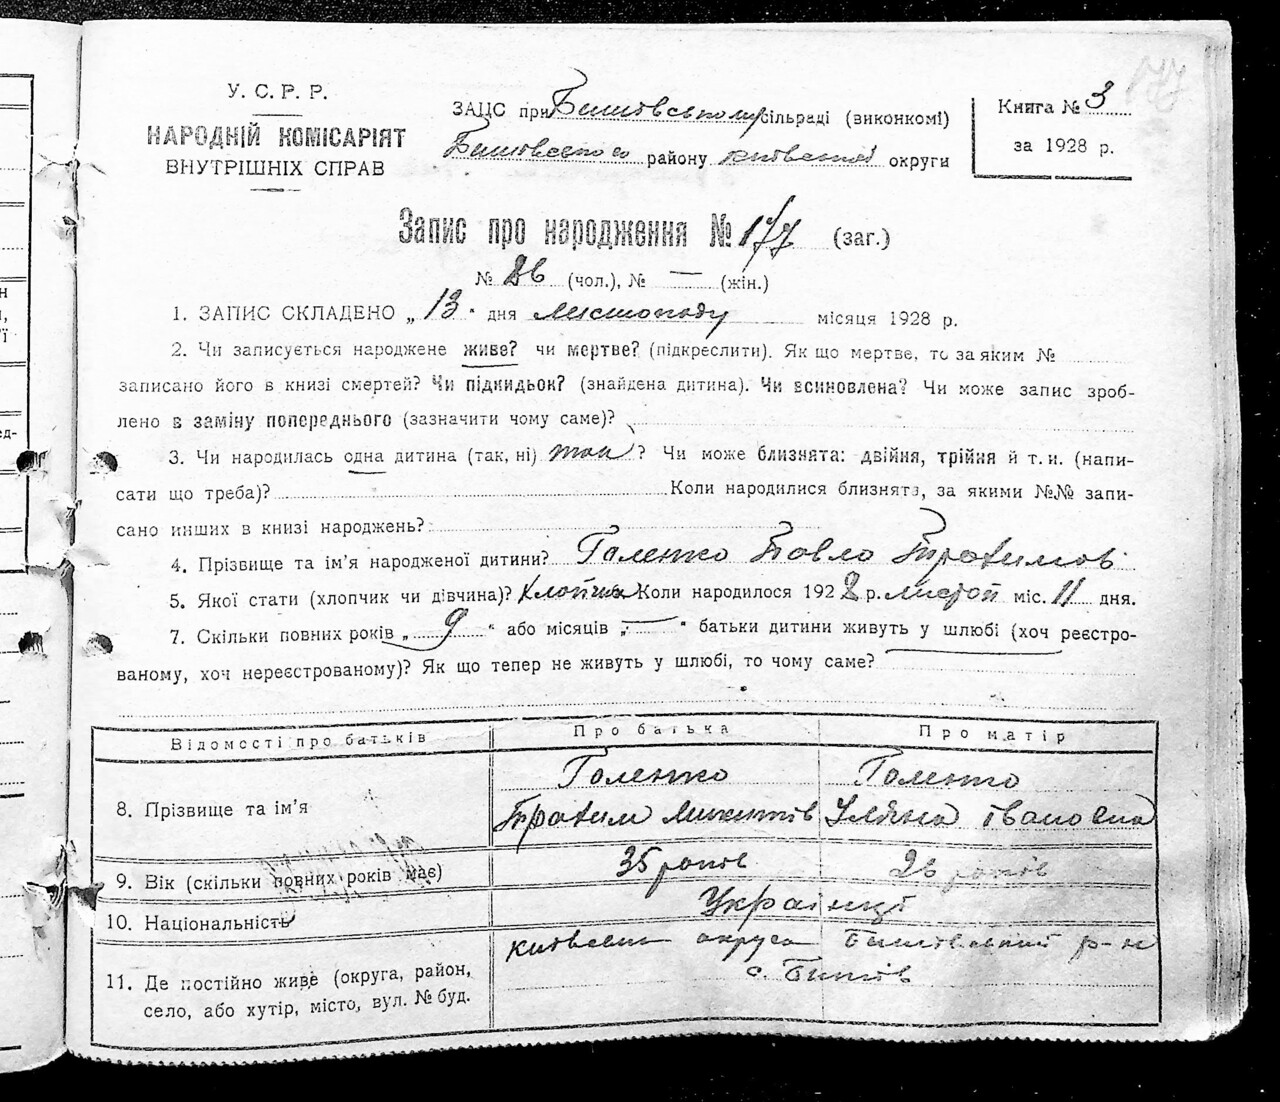 177
У. С. Р. Р.
НАРОДНІЙ КОМІСАРІЯТ
ВНУТРІШНІХ СПРАВ
ЗАЦС при Бишовському сільраді (виконкомі)
Бишовського району київської округи
Книга № 3
за 1928 р.
Запис про народження № 177 (заг.)
№ 26 (чол.), № — (жін.)
1. ЗАПИС СКЛАДЕНО „ 13 " дня листопаду місяця 1928 р.
2. Чи записується народжене живе? чи мертве? (підкреслити). Як що мертве, то за яким №
записано його в книзі смертей? Чи підкидьок? (знайдена дитина). Чи всиновлена? Чи може запис зроб-
лено в заміну попереднього (зазначити чому саме)?
3. Чи народилась одна дитина (так, ні) так? Чи може близнята: двійня, трійня й т. и. (напи-
сати що треба)? Коли народилися близнята, за якими №№ запи-
сано инших в книзі народжень?
4. Прізвище та ім'я народженої дитини? Галенко Павло Трохимов
5. Якої стати (хлопчик чи дівчина)? Хлопчик Коли народилося 1928 р. листоп міс. 11 дня.
7. Скільки повних років „ 9 " або місяців „ — " батьки дитини живуть у шлюбі (хоч реєстро-
ваному, хоч нереєстрованому)? Як що тепер не живуть у шлюбі, то чому саме?
Відомості про батьків Про батька Про матір
8. Прізвище та ім'я Галенко Трохим Микитів Галенко Уляна Івановна
9. Вік (скільки повних років має) 35 років 26 років
10. Національність Українці
11. Де постійно живе (округа, район, київська округа Бишовський р-н
село, або хутір, місто, вул. № буд. с. Бишів